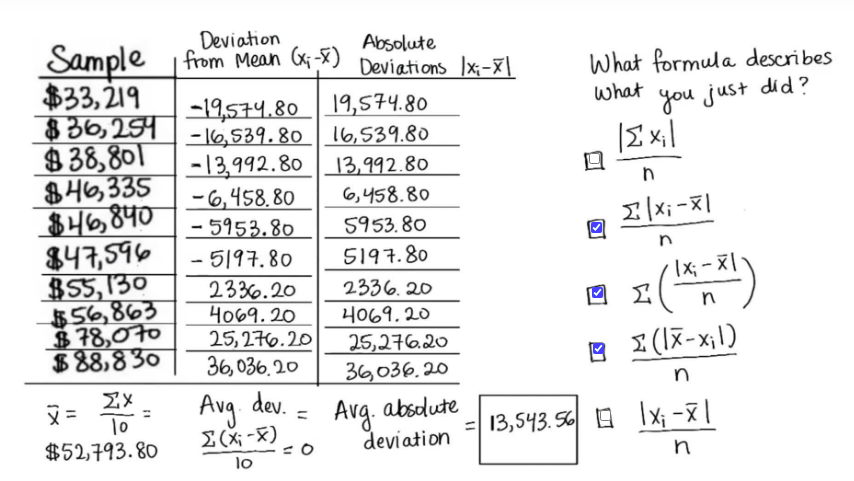 Sample
Deviation from Mean (xᵢ-x̄)
Absolute Deviations |xᵢ-x̄|
$33,219 -19,574.80 19,574.80
$36,254 -16,539.80 16,539.80
$38,801 -13,992.80 13,992.80
$46,335 -6,458.80 6,458.80
$46,840 -5953.80 5953.80
$47,596 -5197.80 5197.80
$55,130 2336.20 2336.20
$56,863 4069.20 4069.20
$78,070 25,276.20 25,276.20
$88,830 36,036.20 36,036.20
x̄ = Σx/10 =
$52,793.80
Avg. dev. =
Σ(xᵢ-x̄)/10 = 0
Avg. absolute deviation = 13,543.56
What formula describes
what you just did?
|Σxᵢ|/n
Σ|xᵢ-x̄|/n
Σ(|xᵢ-x̄|/n)
Σ(|x̄-xᵢ|)/n
|xᵢ-x̄|/n